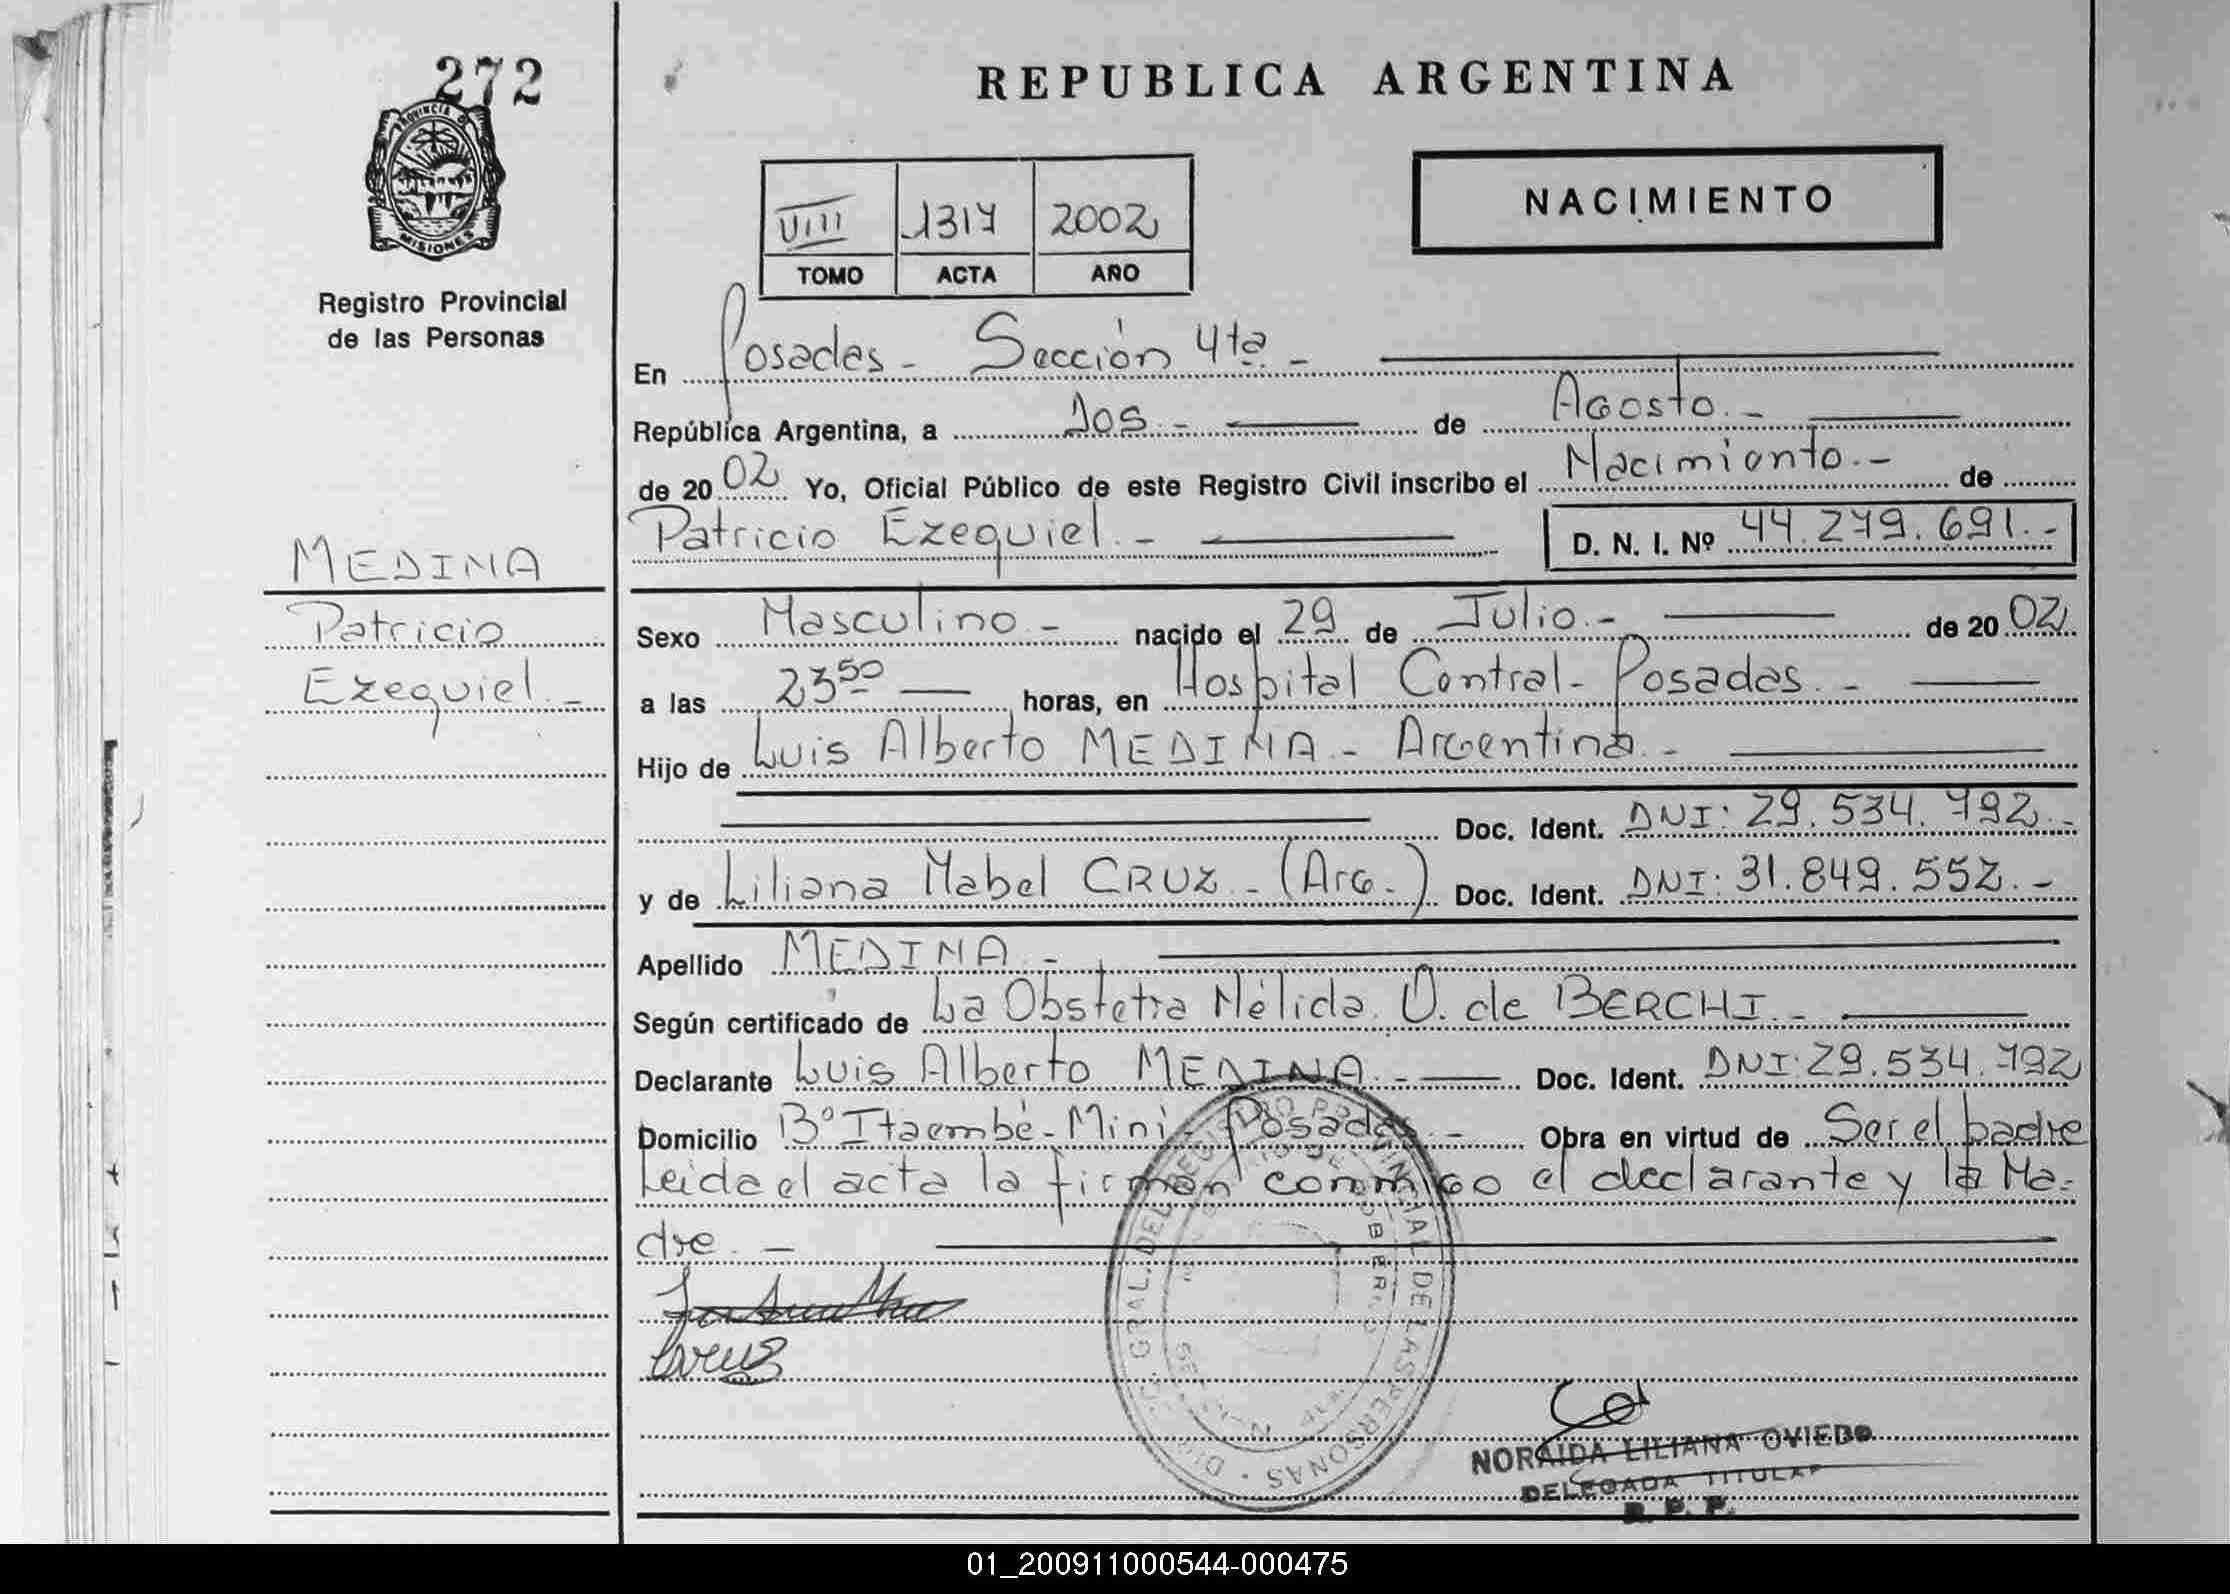 272
PROVINCIA DE
MISIONES
Registro Provincial
de las Personas
MEDINA
Patricio
Ezequiel.-
REPUBLICA ARGENTINA
NACIMIENTO
VIII 1317 2002
TOMO ACTA AÑO
En Posadas - Sección 4ta.-
República Argentina, a dos.- de Agosto.-
de 2002 Yo, Oficial Público de este Registro Civil inscribo el Nacimiento.- de
Patricio Ezequiel.- D. N. I. Nº 44.279.691.-
Sexo Masculino.- nacido el 29 de Julio.- de 2002
a las 23⁵⁰ horas, en Hospital Central - Posadas.-
Hijo de Luis Alberto MEDINA - Argentina.-
Doc. Ident. DNI: 29.534.792.-
y de Liliana Mabel CRUZ.- (Arg.-) Doc. Ident. DNI: 31.849.552.-
Apellido MEDINA.-
Según certificado de La Obstetra Nélida O. de BERCHI.-
Declarante Luis Alberto MEDINA.- Doc. Ident. DNI: 29.534.792
Domicilio Bº Itaembé - Mini - Posadas.- Obra en virtud de Ser el padre
Leida el acta la firman conmigo el declarante y la Ma-
dre.-
Cruz
DIRECC. GRAL. DEL REGISTRO PROVINCIAL DE LAS PERSONAS
NORAIDA LILIANA OVIEDO
DELEGADA TITULAR
R. P. P.
01_200911000544-000475